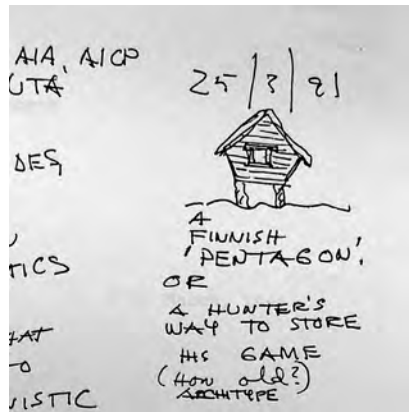 AIA, AICP
UTA
DES,
TICS
HAT
TO
VISTIC
25/3/91
A
FINNISH
'PENTAGON'.
OR
A HUNTER'S
WAY TO STORE
HIS GAME
(How old?)
ARCHITYPE